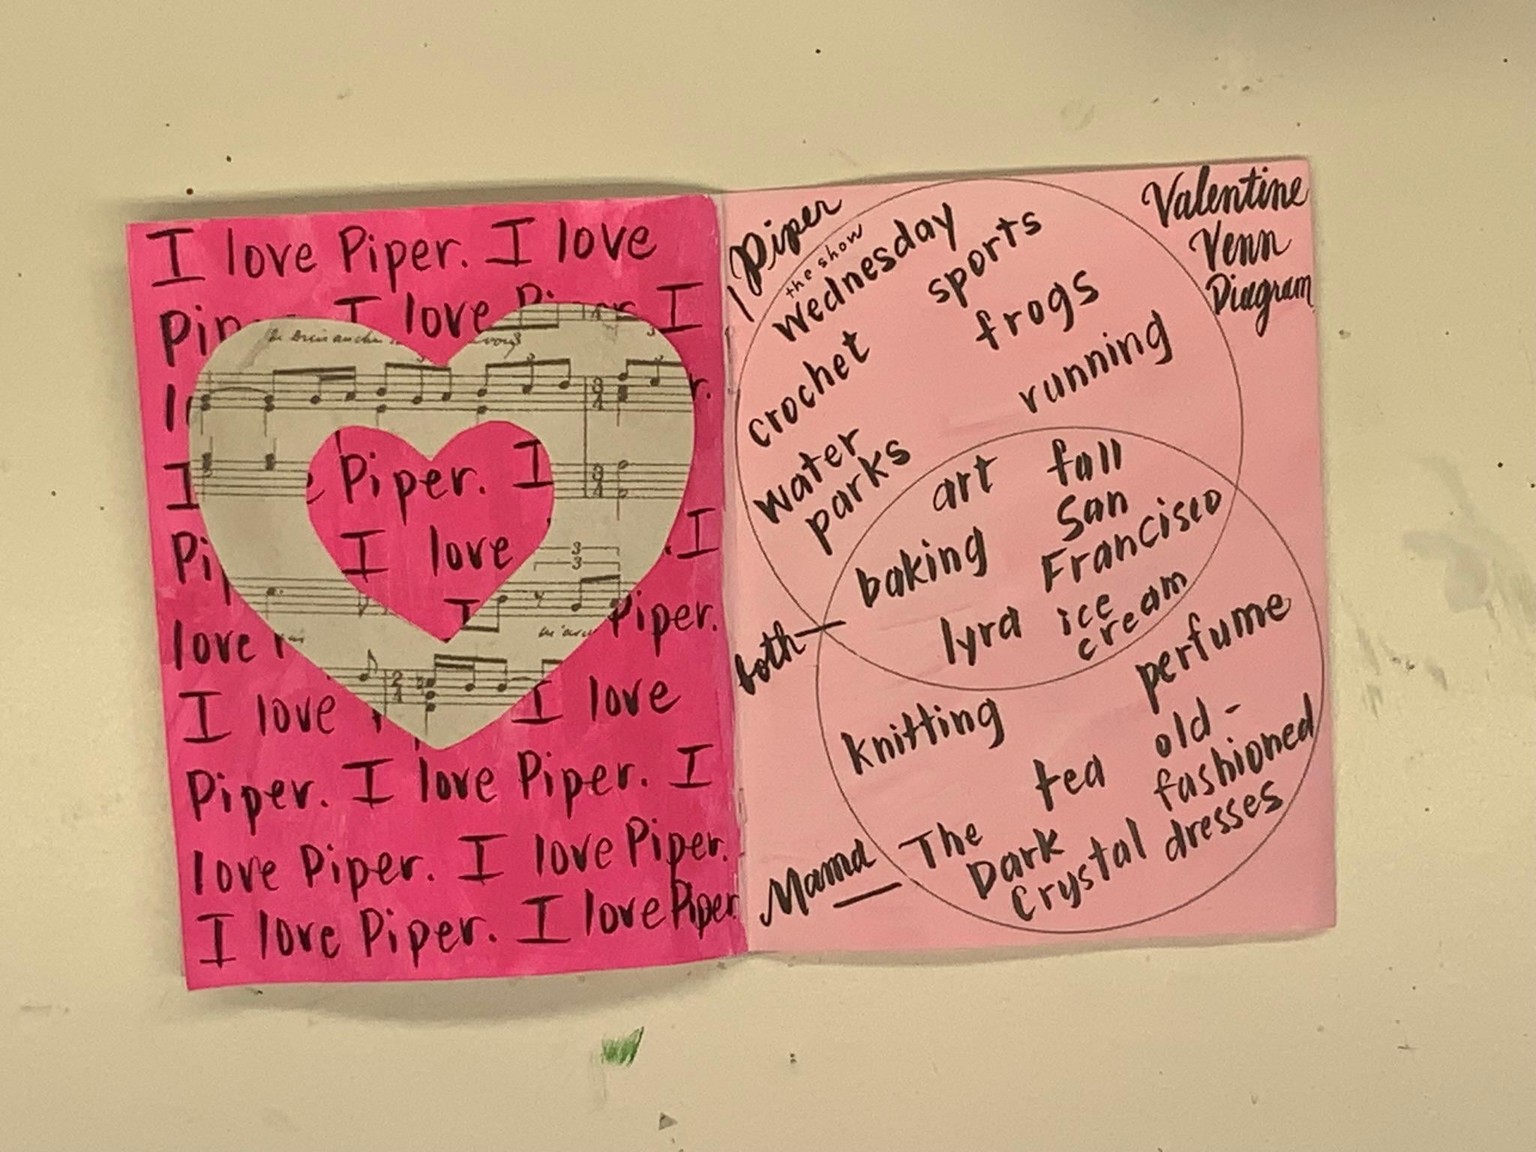 I love Piper. I love
I love I
I
Piper. I
I love
I
I
Piper.
love
I love I love
Piper. I love Piper. I
love Piper. I love Piper.
I love Piper. I love Piper
3
4
3
4
3
3
2
4
Valentine
Venn
Diagram
Piper
the show
Wednesday
sports
frogs
crochet
running
water
parks
art
fall
San
Francisco
baking
lyra
ice
cream
both
perfume
knitting
old-
fashioned
dresses
tea
Mama
The
Dark
Crystal